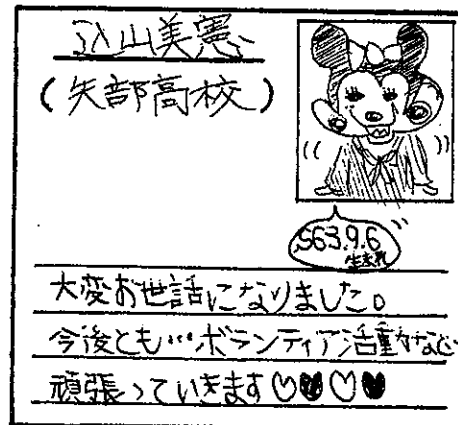 山美憲
(矢部高校)
S63.9.6
生まれ
大変お世話になりました。
今後とも…ボランティア活動など
頑張っていきます♡♥♡♥